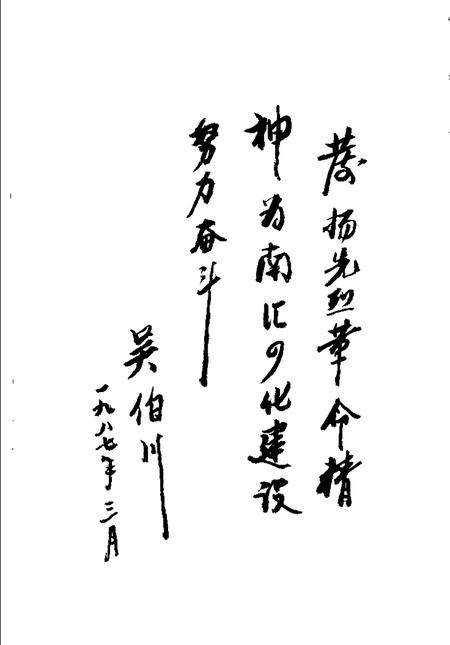 發扬先烈革命精
神为南汇四化建设
努力奋斗
吴伯川
一九八七年三月